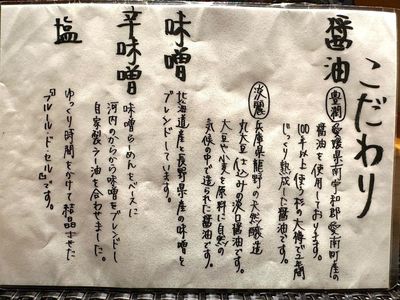 こだわり
醤油
豊潤
愛媛県南宇和郡愛南町産の
醤油を使用しております。
100年以上使う杉の大樽で年間
じっくり熟成した醤油です。
淡麗
兵庫県龍野の天然醸造
丸大豆仕込みの淡口醤油です。
大豆や小麦を原料に自然の
気候の中で造られた醤油です。
味噌
北海道産と長野県産の味噌を
ブレンドしています。
辛味噌
味噌らーめんをベースに
河内のからから味噌をブレンドし
自家製ラー油を合わせました。
塩
ゆっくり時間をかけて結晶させた
『フルール・ド・セル』です。